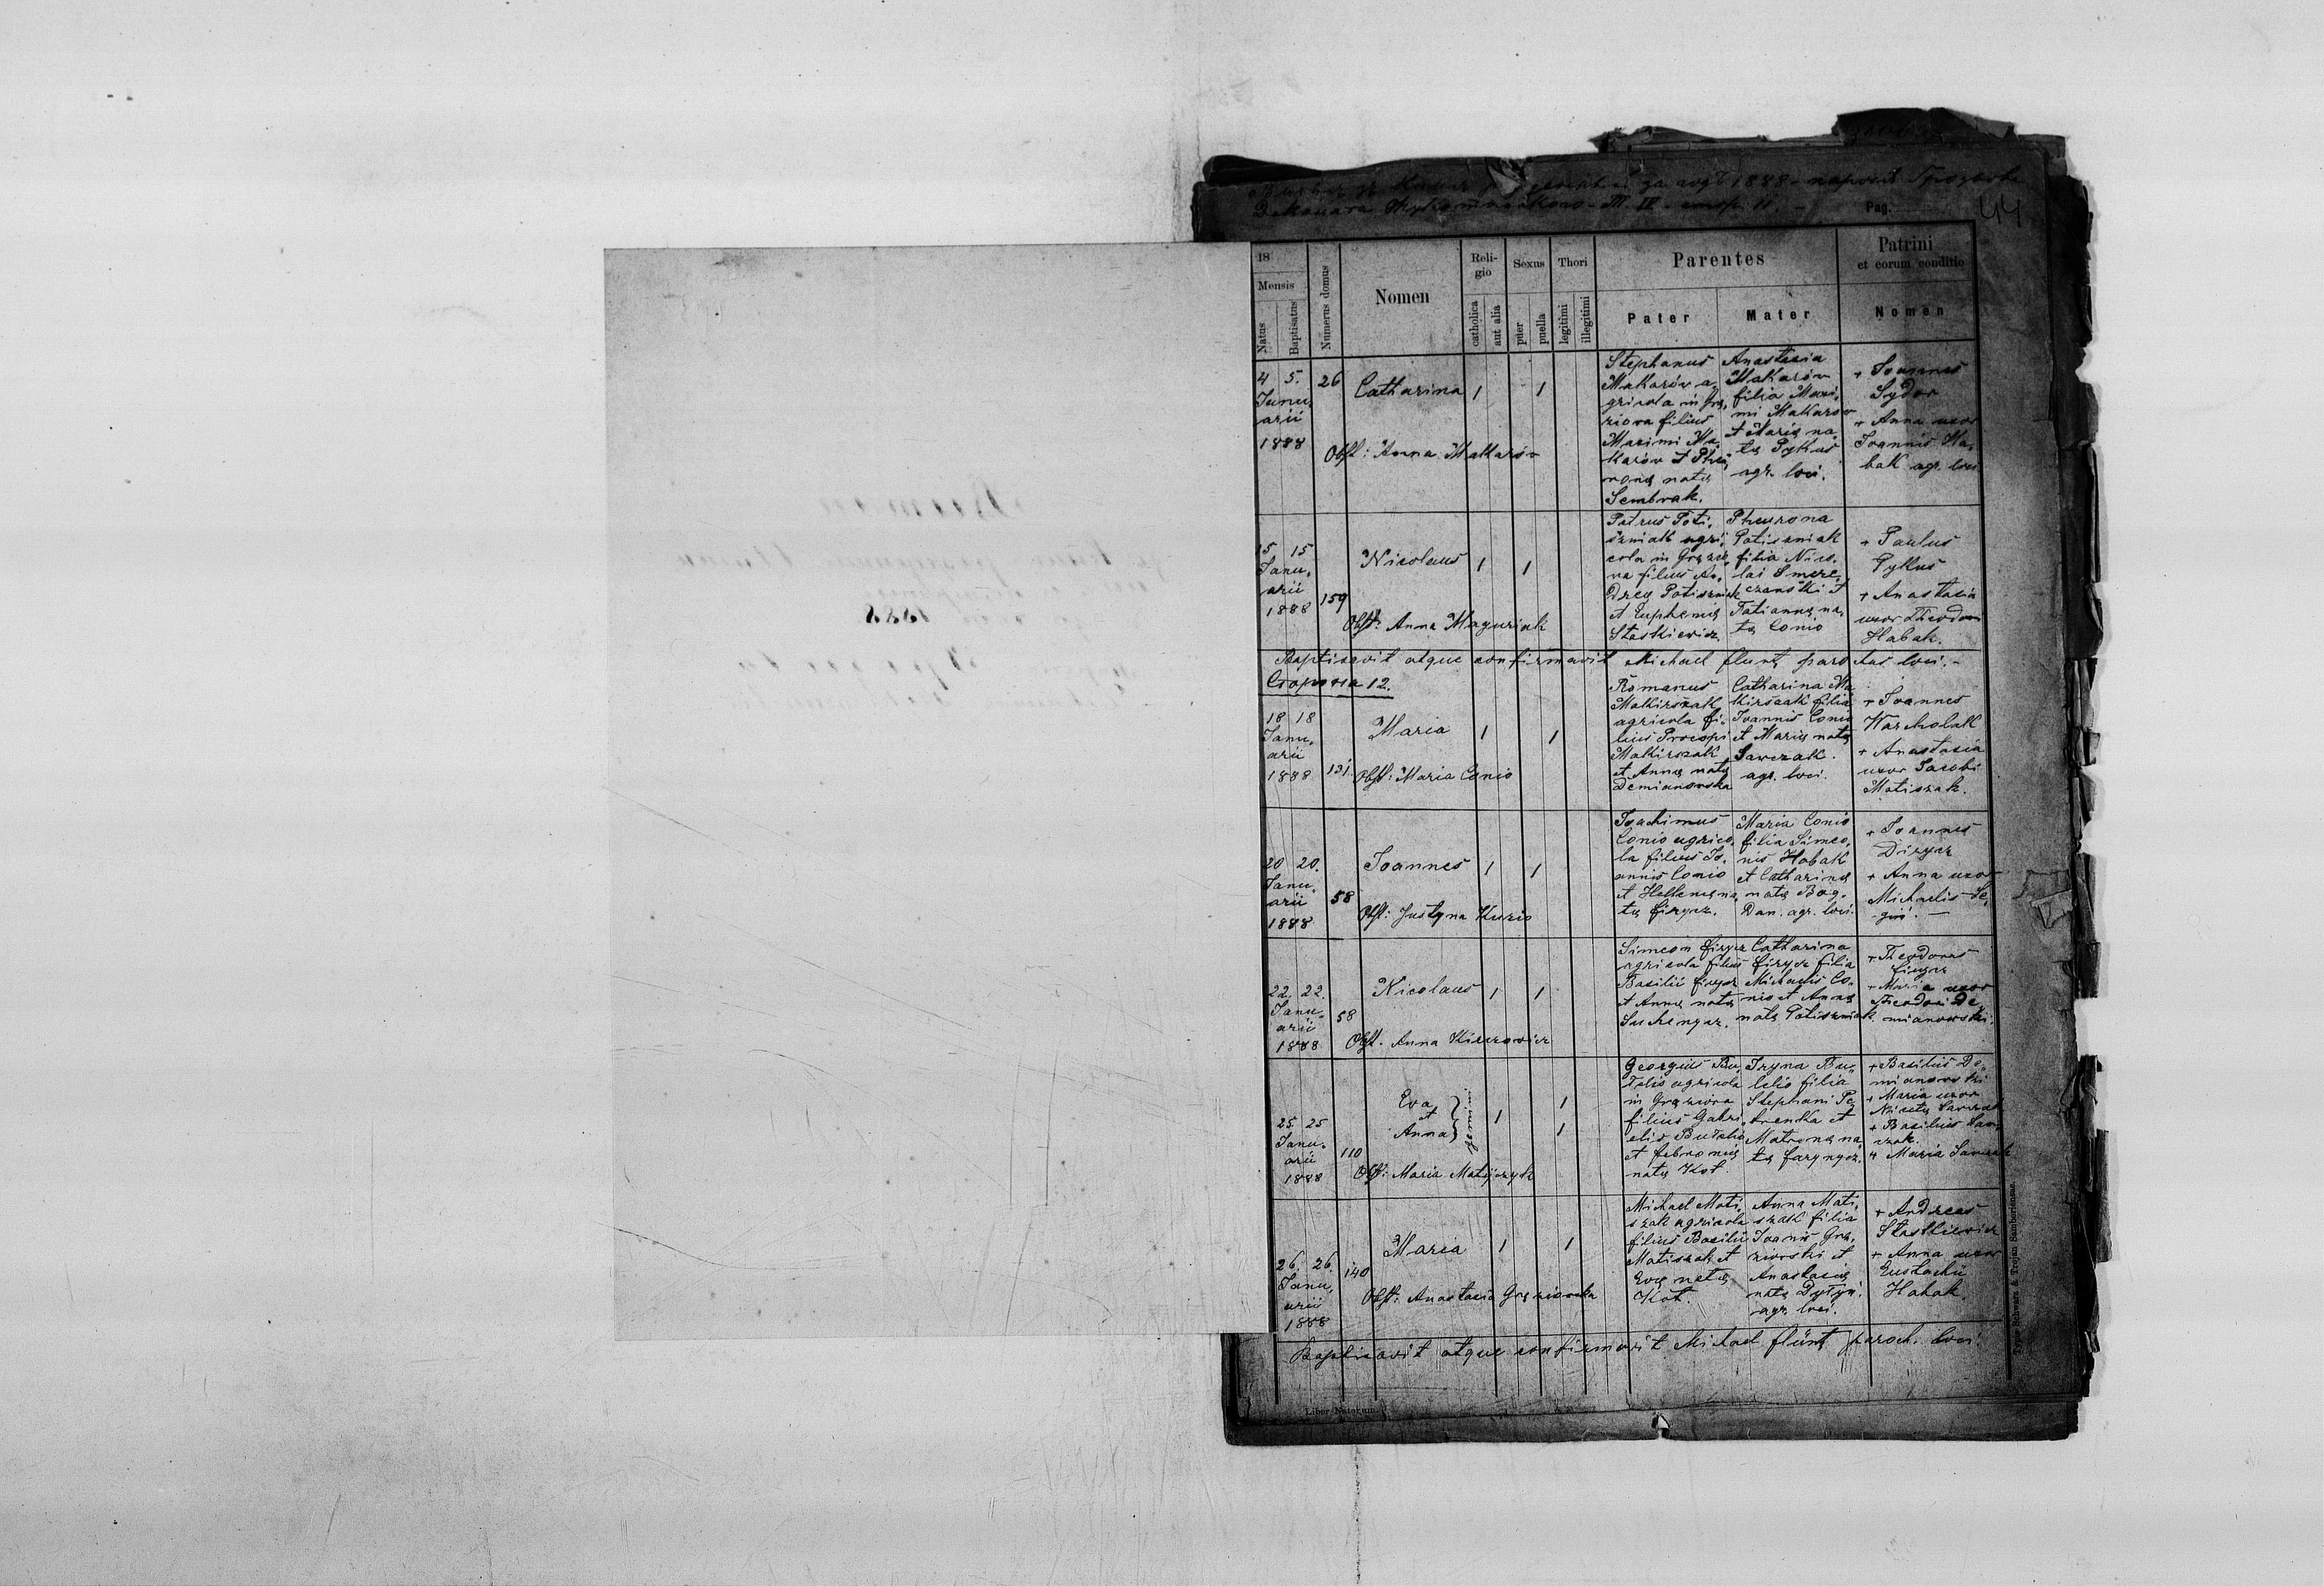 за 1888
Pag. 44
18
Mensis
Natus
Baptisatus
Numerus domus
Nomen
Religio
catholica
aut alia
Sexus
puer
puella
Thori
legitimi
illegitimi
Parentes
Pater
Mater
Patrini
et eorum conditio
Nomen
4 5.
Janu,
arii
1888
26
Catharina
1
1
Obst: Anna Makarów
Stephanus
Makarów a,
gricola in Grą,
ziowa filius
Maximi Ma,
karów et Phev,
roną natą
Sembrak.
Anastasia
Makarów
filia Maxi,
mi Makarów
et Marią na,
tą Pykus
agr. loci.
+ Joannes
Sydor
+ Anna uxor
Joannis Ha,
bak agr. loci
15 15
Janu,
arii
1888
159
Nicolaus
1
1
Obst: Anna Maguriak
Petrus Poti,
szniak agri,
cola in Grązio,
wa filius An,
dreą Potiszniak
et Euphemią
Staskiewicz
Pheurona
Potiszniak
filia Nico,
lai Smere,
czanski et
Tatianną na,
tą Conio
+ Paulus
Pykus
+ Anastasia
uxor Theodori
Habak.
Baptisavit atque confirmavit Michael flunt parochus loci.-
Сторона 12.
18 18
Janu,
arii
1888
131.
Maria
1
1
Obst: Maria Conio
Romanus
Makirszak
agricola fi-
lius Procopi
Makirszak
et Anną natą
Demianowska
Catharina Ma
kirszak filia
Joannis Conio
et Marią natą
Sawczak.
agr. loci.
+ Joannes
Warcholak
+ Anastasia
uxor Jacobi
Matiszak.
20 20.
Janu,
arii
1888
58
Joannes
1
1
Obst: Justyna Kuzio
Joachimus
Conio agrico,
la filius Jo,
annis Conio
et Helleną na
tą firycz.
Maria Conio
filia Simeo,
nis Habak
et Catharina
natą Bog,
dan. agr. loci.
+ Joannes
Dirycz
+ Anna uxor
Michaelis Se,
gin. -
22. 22.
Janu,
arii
1888
58
Nicolaus
1
1
Obst. Anna Kiczrowicz
Simeon firycz
agricola filius
Basilii firycz
et Anną natą
Suchenycz.
Catharina
firycz filia
Michaelis Co,
nio et Anną
natą Potiszniak
+ Theodorus
firycz
+ Maria uxor
Theodori De,
mianowski.
25 25
Janu,
arii
1888
110
Eva
et
Anna
gemini
1
1
1
Obst: Maria Matijczyk
Georgius Bu,
telis agricola
in Grąziowa
filius Gabri,
elis Butelis
et febronią
natą Kot
Iryna Bu,
lelis filia
Stephani Pe,
trenka et
Matroną na,
tą farynycz.
+ Basilius De,
mianowski
+ Maria uxor
Nicetą Sawczak
+ Basilius Saw,
czak.
+ Maria Sawczak
26. 26.
Janu,
arii
1888
140
Maria
1
1
Obst: Anastasia Grąziowska
Michael Mati,
szak agricola
filius Basilii
Matiszak et
Evą natą
Kot.
Anna Mati,
szak filia
Joannis Grą,
ziowski et
Anastasią
natą Dytyn.
agr. loci.
+ Andreas
Staskiewicz
+ Anna uxor
Eustachii
Habak.
Baptisavit atque confirmavit Michael flunt paroch. loci.
Liber Natorum.
Typis Schwarz & Trojan Samboriensae.